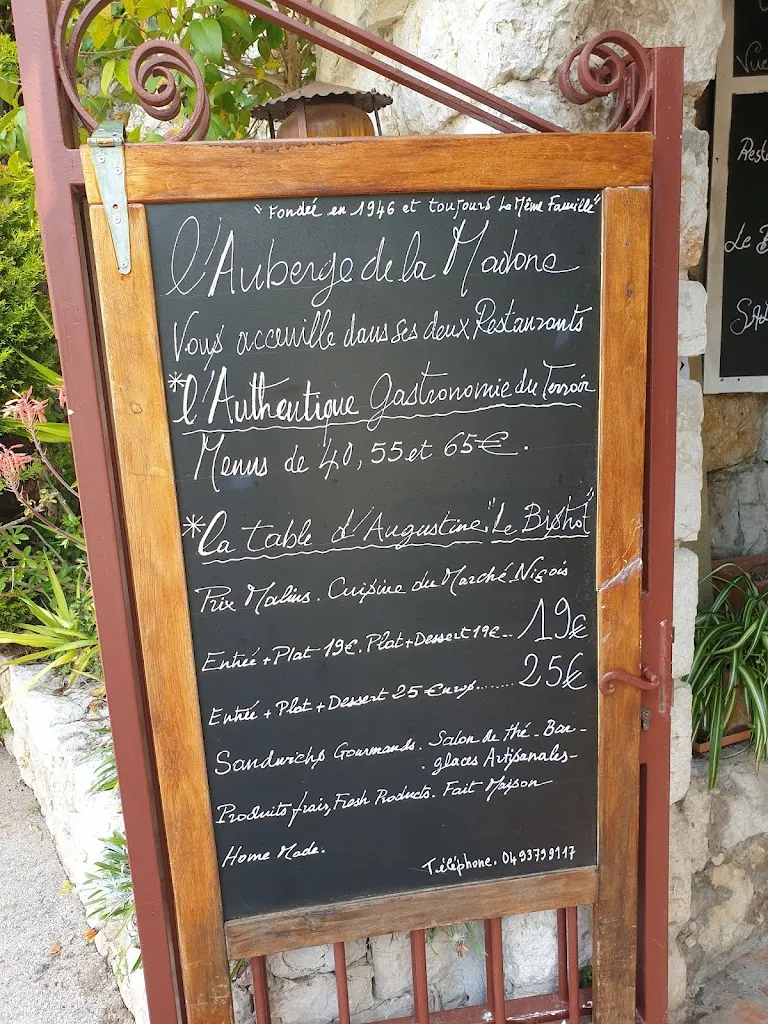 "Fondée en 1946 et toujours La Même Famille"
l'Auberge de la Madone
Vous acceuille dans ses deux Restaurants
*l'Authentique Gastronomie du Terroir
Menus de 40, 55 et 65€.
*la table d'Augustine. "Le Bistrot"
Prix Malins. Cuisine du Marché Niçois
Entrée + Plat 19€. Plat + Dessert 19€.. 19€
Entrée + Plat + Dessert 25 Euros....... 25€
Sandwichs Gourmands. Salon de thé - Bar -
. glaces Artisanales-
Produits frais, Fresh Products. Fait Maison
Home Made.
Téléphone. 0493799117
Vue
Resta
Le B